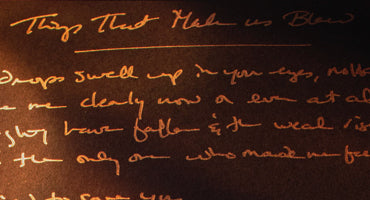 Things That Make us Blow
Drops swell up in your eyes,
me clearly now or even at al
have fallen & the weak
the only one who made me fee
to save you